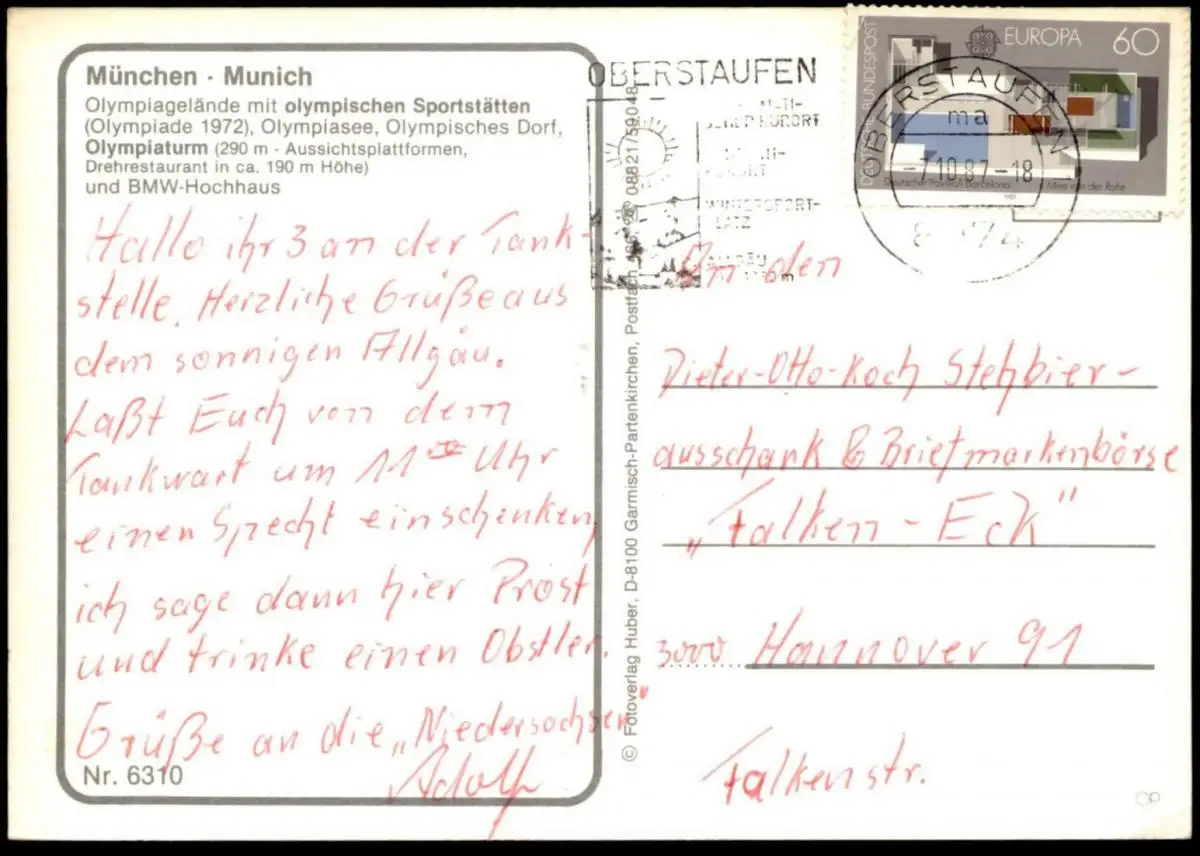 München · Munich
Olympiagelände mit olympischen Sportstätten
(Olympiade 1972), Olympiasee, Olympisches Dorf,
Olympiaturm (290 m · Aussichtsplattformen,
Drehrestaurant in ca. 190 m Höhe)
und BMW-Hochhaus
Hallo ihr 3 an der Tank-
stelle. Herzliche Grüße aus
dem sonnigen Allgäu.
Laßt Euch von dem
Tankwart um 11 Uhr
einen Specht einschenken,
ich sage dann hier Prost
und trinke einen Obstler.
Grüße an die „Niedersachsen"
Adolf
Nr. 6310
© Fotoverlag Huber, D-8100 Garmisch-Partenkirchen, Postfach 08821/59048
OBERSTAUFEN
KURORT
WINTERSPORT-
PLATZ
DEUTSCHE BUNDESPOST
EUROPA 60
Deutscher Pavillon Barcelona
Mies van der Rohe
OBERSTAUFEN
ma
-7.10.87-18
An den
Dieter-Otto-Koch Stehbier-
ausschank & Briefmarkenbörse
„Falken-Eck"
3000 Hannover 91
Falkenstr.